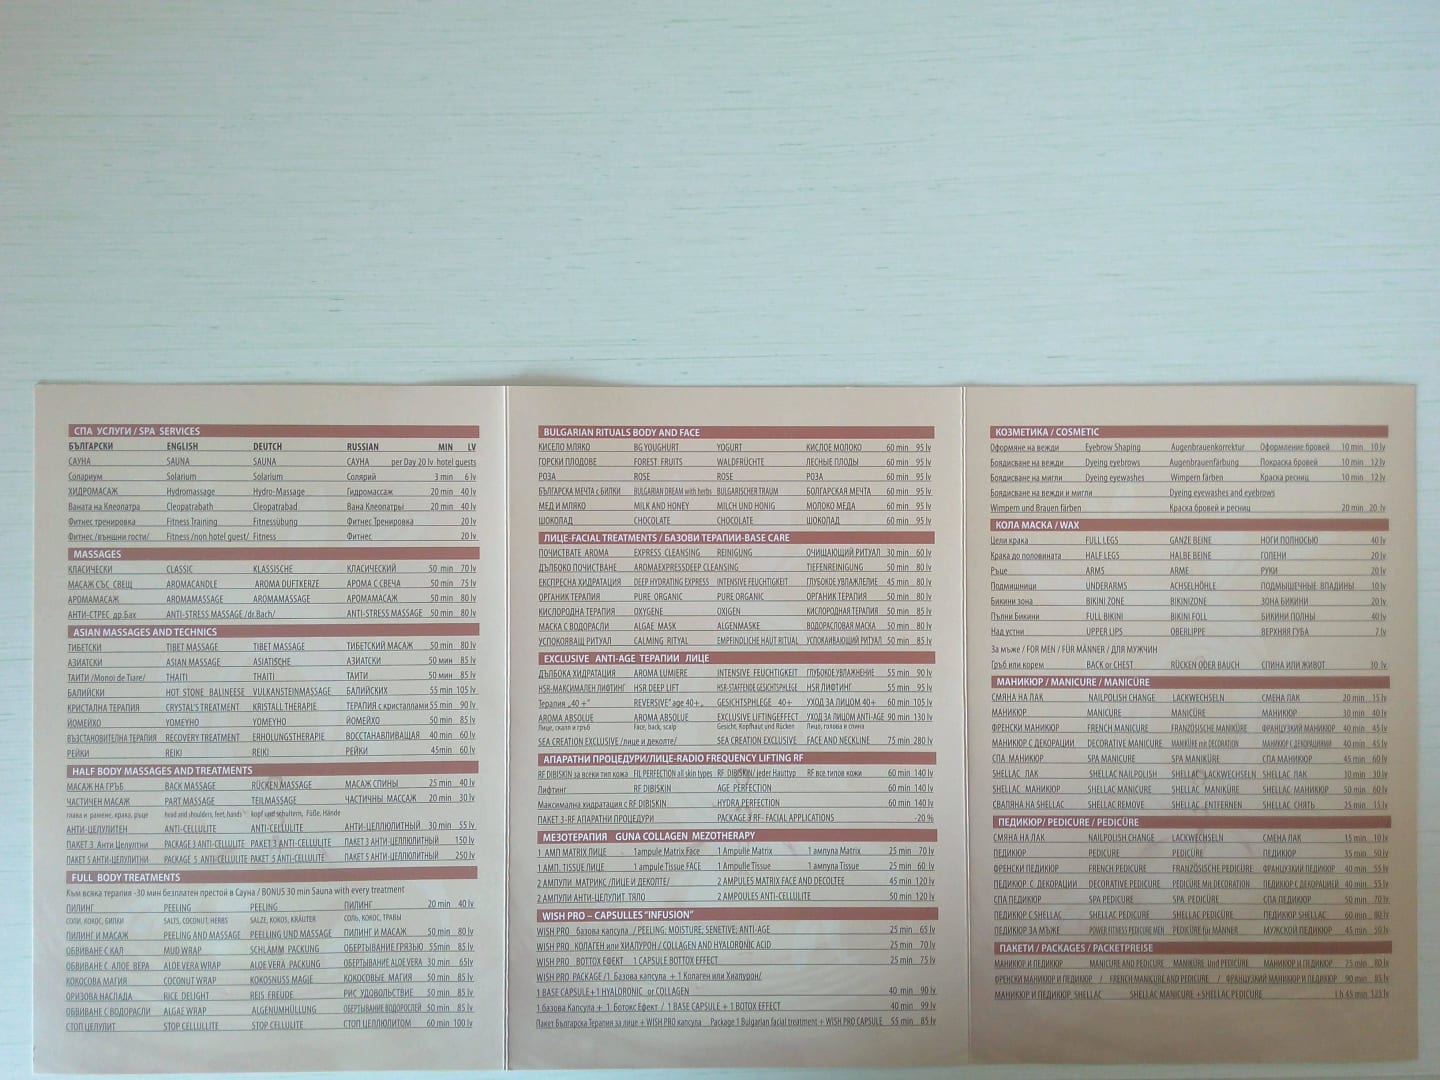 СПА УСЛУГИ / SPA SERVICES
БЪЛГАРСКИ ENGLISH DEUTCH RUSSIAN MIN LV
САУНА SAUNA SAUNA САУНА per Day 20 lv hotel guests
Солариум Solarium Solarium Солярий 3 min 6 lv
ХИДРОМАСАЖ Hydromassage Hydro-Massage Гидромассаж 20 min 40 lv
Ваната на Клеопатра Cleopatrabath Cleopatrabad Вана Клеопатры 20 min 40 lv
Фитнес тренировка Fitness Training Fitnessübung Фитнес Тренировка 20 lv
Фитнес /външни гости/ Fitness /non hotel guest/ Fitness Фитнес 20 lv
MASSAGES
КЛАСИЧЕСКИ CLASSIC KLASSISCHE КЛАСИЧЕСКИЙ 50 min 70 lv
МАСАЖ СЪС СВЕЩ AROMACANDLE AROMA DUFTKERZE АРОМА С СВЕЧА 50 min 75 lv
АРОМАМАСАЖ AROMAMASSAGE AROMAMASSAGE АРОМАМАСАЖ 50 min 80 lv
АНТИ-СТРЕС др.Бах ANTI-STRESS MASSAGE /dr.Bach/ ANTI-STRESS MASSAGE 50 min 80 lv
ASIAN MASSAGES AND TECHNICS
ТИБЕТСКИ TIBET MASSAGE TIBET MASSAGE ТИБЕТСКИЙ МАСАЖ 50 min 80 lv
АЗИАТСКИ ASIAN MASSAGE ASIATISCHE АЗИАТСКИ 50 мин 85 lv
ТАИТИ /Monoi de Tiare/ THAITI THAITI ТАИТИ 50 мин 85 lv
БАЛИЙСКИ HOT STONE BALINEESE VULKANSTEINMASSAGE БАЛИЙСКИХ 55 min 105 lv
КРИСТАЛНА ТЕРАПИЯ CRYSTAL'S TREATMENT KRISTALL THERAPIE ТЕРАПИЯ с кристаллами 55 min 90 lv
ЙОМЕЙХО YOMEYHO YOMEYHO ЙОМЕЙХО 50 min 85 lv
ВЪЗСТАНОВИТЕЛНА ТЕРАПИЯ RECOVERY TREATMENT ERHOLUNGSTHERAPIE ВОССТАНАВЛИВАЩАЯ 40 min 60 lv
РЕЙКИ REIKI REIKI РЕЙКИ 45min 60 lv
HALF BODY MASSAGES AND TREATMENTS
МАСАЖ НА ГРЪБ BACK MASSAGE RÜCKEN MASSAGE МАСАЖ СПИНЫ 25 min 40 lv
ЧАСТИЧЕН МАСАЖ PART MASSAGE TEILMASSAGE ЧАСТИЧНЫ МАССАЖ 20 min 30 lv
глава и рамене, крака, ръце head and shoulders, feet, hands kopf und schultern, Füße, Hände
АНТИ-ЦЕЛУЛИТЕН ANTI-CELLULITE ANTI-CELLULITE АНТИ-ЦЕЛЛЮЛИТНЫЙ 30 min 55 lv
ПАКЕТ 3 Анти Целултни PACKAGE 3 ANTI-CELLULITE PAKET 3 ANTI-CELLULITE ПАКЕТ 3 АНТИ-ЦЕЛЛЮЛИТНЫЙ 150 lv
ПАКЕТ 5 АНТИ-ЦЕЛУЛИТНИ PACKAGE 5 ANTI-CELLULITE PAKET 5 ANTI-CELLULITE ПАКЕТ 5 АНТИ-ЦЕЛЛЮЛИТНЫЙ 250 lv
FULL BODY TREATMENTS
Към всяка терапия -30 мин безплатен престой в Сауна / BONUS 30 min Sauna with every treatment
ПИЛИНГ PEELING PEELING ПИЛИНГ 20 min 40 lv
СОЛИ, КОКОС, БИЛКИ SALTS, COCONUT, HERBS SALZE, KOKOS, KRÄUTER СОЛЬ, КОКОС, ТРАВЫ
ПИЛИНГ И МАСАЖ PEELING AND MASSAGE PEELLING UND MASSAGE ПИЛИНГ И МАСАЖ 50 min 80 lv
ОБВИВАНЕ С КАЛ MUD WRAP SCHLAMM PACKUNG ОБЕРТЫВАНИЕ ГРЯЗЬЮ 55min 85 lv
ОБВИВАНЕ С АЛОЕ ВЕРА ALOE VERA WRAP ALOE VERA PACKUNG ОБЕРТЫВАНИЕ ALOE VERA 30 min 65lv
КОКОСОВА МАГИЯ COCONUT WRAP KOKOSNUSS MAGIE КОКОСОВЫЕ МАГИЯ 50 min 85 lv
ОРИЗОВА НАСЛАДА RICE DELIGHT REIS FREUDE РИС УДОВОЛЬСТВИЕ 50 min 85 lv
ОБВИВАНЕ С ВОДОРАСЛИ ALGAE WRAP ALGENUMHÜLLUNG ОБЕРТЫВАНИЕ ВОДОРОСЛЕЙ 50 min 85 lv
СТОП ЦЕЛУЛИТ STOP CELLULLITE STOP CELLULITE СТОП ЦЕЛЛЮЛИТОМ 60 min 100 lv
BULGARIAN RITUALS BODY AND FACE
КИСЕЛО МЛЯКО BG YOUGHURT YOGURT КИСЛОЕ МОЛОКО 60 min 95 lv
ГОРСКИ ПЛОДОВЕ FOREST FRUITS WALDFRÜCHTE ЛЕСНЫЕ ПЛОДЫ 60 min 95 lv
РОЗА ROSE ROSE РОЗА 60 min 95 lv
БЪЛГАРСКА МЕЧТА с БИЛКИ BULGARIAN DREAM with herbs BULGARISCHER TRAUM БОЛГАРСКАЯ МЕЧТА 60 min 95 lv
МЕД И МЛЯКО MILK AND HONEY MILCH UND HONIG МОЛОКО МЕДА 60 min 95 lv
ШОКОЛАД CHOCOLATE CHOCOLATE ШОКОЛАД 60 min 95 lv
ЛИЦЕ-FACIAL TREATMENTS / БАЗОВИ ТЕРАПИИ-BASE CARE
ПОЧИСТВАТЕ AROMA EXPRESS CLEANSING REINIGUNG ОЧИЩАЮЩИЙ РИТУАЛ 30 min 60 lv
ДЪЛБОКО ПОЧИСТВАНЕ AROMAEXPRESSDEEP CLEANSING TIEFENREINIGUNG 50 min 80 lv
ЕКСПРЕСНА ХИДРАТАЦИЯ DEEP HYDRATING EXPRESS INTENSIVE FEUCHTIGKEIT ГЛУБОКОЕ УВЛАЖЛЕЛИЕ 45 min 80 lv
ОРГАНИК ТЕРАПИЯ PURE ORGANIC PURE ORGANIC ОРГАНИК ТЕРАПИЯ 50 min 80 lv
КИСЛОРОДНА ТЕРАПИЯ OXYGENE OXIGEN КИСЛОРОДНАЯ ТЕРАПИЯ 50 min 85 lv
МАСКА С ВОДОРАСЛИ ALGAE MASK ALGENMASKE ВОДОРАСЛОВАЯ МАСКА 50 min 80 lv
УСПОКОЯВАЩ РИТУАЛ CALMING RITYAL EMPFEINLICHE HAUT RITUAL УСПОКАИВАЮЩИЙ РИТУАЛ 50 min 85 lv
EXCLUSIVE ANTI-AGE ТЕРАПИИ ЛИЦЕ
ДЪЛБОКА ХИДРАТАЦИЯ AROMA LUMIERE INTENSIVE FEUCHTIGKEIT ГЛУБОКОЕ УВЛАЖНЕНИЕ 55 min 90 lv
HSR-МАКСИМАЛЕН ЛИФТИНГ HSR DEEP LIFT HSR-STAFFENDE GESICHTSPHLEGE HSR ЛИФТИНГ 55 min 95 lv
Терапия „40 +" REVERSIVE" age 40+„ GESICHTSPHLEGE 40+ УХОД ЗА ЛИЦОМ 40+ 60 min 105 lv
AROMA ABSOLUE AROMA ABSOLUE EXCLUSIVE LIFTINGEFFECT УХОД ЗА ЛИЦОМ ANTI-AGE 90 min 130 lv
Лице, скалп и гръб Face, back, scalp Gesicht, Kopfhaut und Rücken Лицо, голова и спина
SEA CREATION EXCLUSIVE /лице и деколте/ SEA CREATION EXCLUSIVE FACE AND NECKLINE 75 min 280 lv
АПАРАТНИ ПРОЦЕДУРИ/ЛИЦЕ-RADIO FREQUENCY LIFTING RF
RF DIBISKIN за всеки тип кожа FIL PERFECTION all skin types RF DIBISKIN/ jeder Hauttyp RF все типов кожи 60 min 140 lv
Лифтинг RF DIBISKIN AGE PERFECTION 60 min 140 lv
Максимална хидратация с RF DIBISKIN HYDRA PERFECTION 60 min 140 lv
ПАКЕТ 3-RF АПАРАТНИ ПРОЦЕДУРИ PACKAGE 3 RF- FACIAL APPLICATIONS -20 %
МЕЗОТЕРАПИЯ GUNA COLLAGEN MEZOTHERAPY
1 АМП MATRIX ЛИЦЕ 1ampule Matrix Face 1 Ampulle Matrix 1 ампула Matrix 25 min 70 lv
1 АМП. TISSUE ЛИЦЕ 1 ampule Tissue FACE 1 Ampulle Tissue 1 ампула Tissue 25 min 60 lv
2 АМПУЛИ МАТРИКС /ЛИЦЕ И ДЕКОЛТЕ/ 2 AMPULES MATRIX FACE AND DECOLTEE 45 min 120 lv
2 АМПУЛИ АНТИ-ЦЕЛУЛИТ ТЯЛО 2 AMPOULES ANTI-CELLULITE 50 min 120 lv
WISH PRO – CAPSULLES "INFUSION"
WISH PRO базова капсула / PEELING; MOISTURE; SENETIVE; ANTI-AGE 25 min 65 lv
WISH PRO КОЛАГЕН или ХИАЛУРОН / COLLAGEN AND HYALORONIC ACID 25 min 70 lv
WISH PRO BOTTOX ЕФЕКТ 1 CAPSULE BOTTOX EFFECT 25 min 75 lv
WISH PRO PACKAGE /1 Базова капсула + 1 Колаген или Хиалурон/
1 BASE CAPSULE+1 HYALORONIC or COLLAGEN 40 min 90 lv
1 базова Капсула + 1 Ботокс Ефект / 1 BASE CAPSULE + 1 BOTOX EFFECT 40 min 99 lv
Пакет Българска Терапия за лице + WISH PRO капсула Package 1 Bulgarian facial treatment + WISH PRO CAPSULE 55 min 85 lv
КОЗМЕТИКА / COSMETIC
Оформяне на вежди Eyebrow Shaping Augenbrauenkorrektur Оформление бровей 10 min 10 lv
Боядисване на вежди Dyeing eyebrows Augenbrauenfärbung Покраска бровей 10 min 12 lv
Боядисване на мигли Dyeing eyewashes Wimpern färben Краска ресниц 10 min 12 lv
Боядисване на вежди и мигли Dyeing eyewashes and eyebrows
Wimpern und Brauen färben Краска бровей и ресниц 20 min 20 lv
КОЛА МАСКА / WAX
Цели крака FULL LEGS GANZE BEINE НОГИ ПОЛНОСЬЮ 40 lv
Крака до половината HALF LEGS HALBE BEINE ГОЛЕНИ 20 lv
Ръце ARMS ARME РУКИ 20 lv
Подмишници UNDERARMS ACHSELHÖHLE ПОДМЫШЕЧНЫЕ ВПАДИНЫ 10 lv
Бикини зона BIKINI ZONE BIKINIZONE ЗОНА БИКИНИ 20 lv
Пълни Бикини FULL BIKINI BIKINI FOLL БИКИНИ ПОЛНЫ 40 lv
Над устни UPPER LIPS OBERLIPPE ВЕРХНЯЯ ГУБА 7 lv
За мъже / FOR MEN / FÜR MÄNNER / ДЛЯ МУЖЧИН
Гръб или корем BACK or CHEST RÜCKEN ODER BAUCH СПИНА ИЛИ ЖИВОТ 30 lv
МАНИКЮР / MANICURE / MANICÜRE
СМЯНА НА ЛАК NAILPOLISH CHANGE LACKWECHSELN СМЕНА ЛАК 20 min 15 lv
МАНИКЮР MANICURE MANICÜRE МАНИКЮР 30 min 40 lv
ФРЕНСКИ МАНИКЮР FRENCH MANICURE FRANZÖSISCHE MANIKÜRE ФРАНЦУЗКИЙ МАНИКЮР 40 min 45 lv
МАНИКЮР С ДЕКОРАЦИИ DECORATIVE MANICURE MANIKÜRE mit DECORATION МАНИКЮР С ДЕКОРАЦИЯМИ 40 min 45 lv
СПА МАНИКЮР SPA MANICURE SPA MANIKÜRE СПА МАНИКЮР 45 min 60 lv
SHELLAC ЛАК SHELLAC NAILPOLISH SHELLAC LACKWECHSELN SHELLAC ЛАК 30 min 30 lv
SHELLAC МАНИКЮР SHELLAC MANICURE SHELLAC MANIKÜRE SHELLAC МАНИКЮР 50 min 60 lv
СВАЛЯНА НА SHELLAC SHELLAC REMOVE SHELLAC ENTFERNEN SHELLAC СНЯТЬ 25 min 15 lv
ПЕДИКЮР/ PEDICURE / PEDICÜRE
СМЯНА НА ЛАК NAILPOLISH CHANGE LACKWECHSELN СМЕНА ЛАК 15 min 10 lv
ПЕДИКЮР PEDICURE PEDICÜRE ПЕДИКЮР 35 min 50 lv
ФРЕНСКИ ПЕДИКЮР FRENCH PEDICURE FRANZÖSISCHE PEDICÜRE ФРАНЦУЗСКИЙ ПЕДИКЮР 40 min 55 lv
ПЕДИКЮР С ДЕКОРАЦИИ DECORATIVE PEDICURE PEDICÜRE Mit DECORATION ПЕДИКЮР С ДЕКОРАЦИЕЙ 40 min 55 lv
СПА ПЕДИКЮР SPA PEDICURE SPA PEDICÜRE СПА ПЕДИКЮР 50 min 70 lv
ПЕДИКЮР С SHELLAC PEDICURE SHELLAC PEDICÜRE SHELLAC ПЕДИКЮР SHELLAC 60 min 80 lv
ПЕДИКЮР ЗА МЪЖЕ POWER FITNESS PEDICURE MEN PEDICÜRE für MÄNNER МУЖСКОЙ ПЕДИКЮР 45 min 50 lv
ПАКЕТИ / PACKAGES / PACKETPREISE
МАНИКЮР И ПЕДИКЮР MANICURE AND PEDICURE MANIKÜRE Und PEDICÜRE МАНИКЮР И ПЕДИКЮР 75 min 80 lv
ФРЕНСКИ МАНИКЮР И ПЕДИКЮР / FRENCH MANICURE AND PEDICURE / ФРАНЦУЗКИЙ МАНИКЮР И ПЕДИКЮР 90 min 85 lv
МАНИКЮР И ПЕДИКЮР SHELLAC SHELLAC MANICURE +SHELLAC PEDICURE 1 h 45 min 125 lv